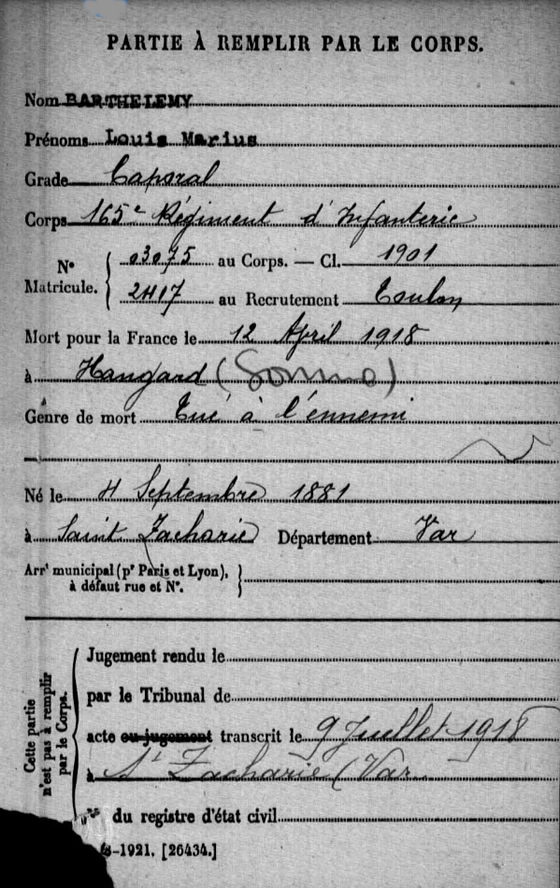 PARTIE À REMPLIR PAR LE CORPS.
Nom BARTHELEMY
Prénoms Louis Marius
Grade Caporal
Corps 165e Régiment d'Infanterie
No Matricule. 03075 au Corps. — Cl. 1901
2417 au Recrutement Toulon
Mort pour la France le 12 April 1918
à Hangard (Somme)
Genre de mort Tué à l'ennemi
Né le 4 Septembre 1881
à Saint Zacharie Département Var
Arrt municipal (pr Paris et Lyon),
à défaut rue et No.
Cette partie
n'est pas à remplir
par le Corps.
Jugement rendu le
par le Tribunal de
acte ou jugement transcrit le 9 Juillet 1918
à St Zacharie (Var
No du registre d'état civil
-1921. [26434.]